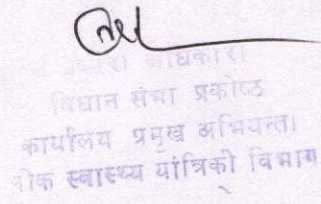 अधिकारी
विधान सभा प्रकोष्ठ
कार्यालय प्रमुख अभियन्ता
लोक स्वास्थ्य यांत्रिकी विभाग